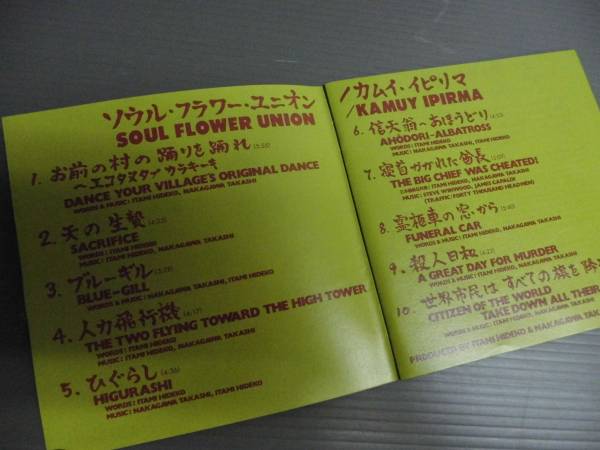 ソウル・フラワー・ユニオン
SOUL FLOWER UNION
1. お前の村の踊りを踊れ
〜エコタヌタプカラキーキ
DANCE YOUR VILLAGE'S ORIGINAL DANCE
WORDS & MUSIC: ITAMI HIDEKO, NAKAGAWA TAKASHI
2. 天の生贄 (4:22)
SACRIFICE
WORDS: ITAMI HIDEKO
MUSIC: ITAMI HIDEKO, NAKAGAWA TAKASHI
3. ブルーギル
BLUE-GILL
WORDS & MUSIC: NAKAGAWA TAKASHI, ITAMI HIDEKO
4. 人力飛行機 (6:17)
THE TWO FLYING TOWARD THE HIGH TOWER
WORDS: ITAMI HIDEKO
MUSIC: ITAMI HIDEKO, NAKAGAWA TAKASHI
5. ひぐらし (4:36)
HIGURASHI
WORDS: ITAMI HIDEKO
MUSIC: NAKAGAWA TAKASHI, ITAMI HIDEKO
/カムイ・イピリマ
/KAMUY IPIRMA
6. 信天翁〜あほうどり
AHŌDORI-ALBATROSS
WORDS: ITAMI HIDEKO
MUSIC: NAKAGAWA TAKASHI, ITAMI HIDEKO
7. 寝首かかれた酋長
THE BIG CHIEF WAS CHEATED!
ITAMI HIDEKO, NAKAGAWA TAKASHI
MUSIC: STEVE WINWOOD, JAMES CAPALDI
(TRAFFIC / FORTY THOUSAND HEADMEN)
8. 霊柩車の窓から
FUNERAL CAR
WORDS & MUSIC: ITAMI HIDEKO, NAKAGAWA TAKASHI
9. 殺人日和 (4:22)
A GREAT DAY FOR MURDER
WORDS: ITAMI HIDEKO, NAKAGAWA TAKASHI
MUSIC: NAKAGAWA TAKASHI, ITAMI HIDEKO
10. 世界市民はすべての旗を
CITIZEN OF THE WORLD
TAKE DOWN ALL THEIR
WORDS & MUSIC: ITAMI HIDEKO, NAKAGAWA
PRODUCED BY ITAMI HIDEKO & NAKAGAWA TA